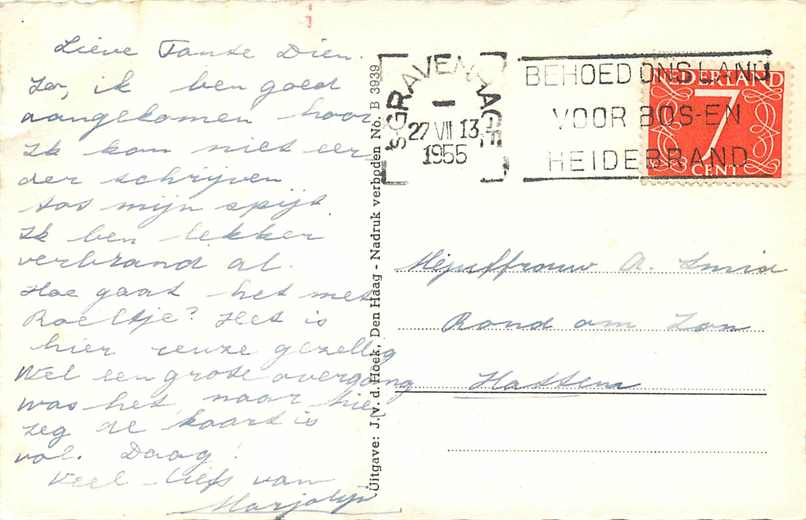 Lieve Tante Dien.
Zo, ik ben goed
aangekomen hoor
Ik kon niet eer
der schrijven
tot mijn spijt.
Ik ben lekker
verbrand al.
Hoe gaat het met
Roeltje? Het is
hier reuze gezellig
Wel een grote overgang
was het, naar hier
zeg de kaart is
vol. Daag!
Veel liefs van
Marjolijn
Uitgave: J. v. d. Hoek, Den Haag - Nadruk verboden No. B 3939
'SGRAVENHAGE
27 VII 13
1955
BEHOED ONS LAND
VOOR BOS-EN
HEIDEBRAND
NEDERLAND
7
CENT
Mejuffrouw A. Smid
Rond om Zon
Hattem